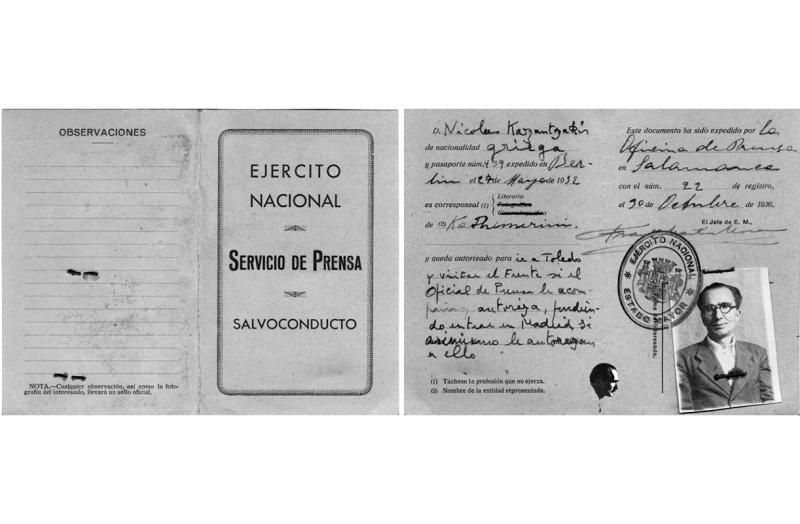 OBSERVACIONES
NOTA.—Cualquier observación, así como la foto-
grafía del interesado, llevará un sello oficial.
EJERCITO
NACIONAL
SERVICIO DE PRENSA
SALVOCONDUCTO
D. Nicolas Kazantzakis
de nacionalidad griega
y pasaporte núm. 439 expedido en Ber-
lin el 27 de Mayo de 1932
es corresponsal (1) Literario
Fotográfico
Cinematográfico
de (2) Kathimerini.
y queda autorizado para ir a Toledo
y visitar el Frente si el
Oficial de Prensa le acom-
paña y autoriza, pudien-
do entrar en Madrid si
asimismo le autorizan
a ello
(1) Táchese la profesión que no ejerza.
(2) Nombre de la entidad representada.
Este documento ha sido expedido por La
Oficina de Prensa
en Salamanca
con el núm. 22 de registro,
el 30 de Octubre de 1936.
El Jefe de E. M.,
EJÉRCITO NACIONAL
ESTADO MAYOR
interesado,